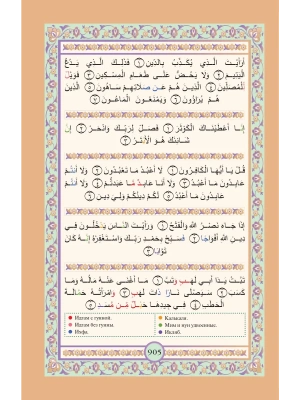 أَرَأَيْتَ الَّذِي يُكَذِّبُ بِالدِّينِ ۝١ فَذَٰلِكَ الَّذِي يَدُعُّ
الْيَتِيمَ ۝٢ وَلَا يَحُضُّ عَلَىٰ طَعَامِ الْمِسْكِينِ ۝٣ فَوَيْلٌ
لِّلْمُصَلِّينَ ۝٤ الَّذِينَ هُمْ عَن صَلَاتِهِمْ سَاهُونَ ۝٥ الَّذِينَ
هُمْ يُرَاؤُونَ ۝٦ وَيَمْنَعُونَ الْمَاعُونَ ۝٧
إِنَّا أَعْطَيْنَاكَ الْكَوْثَرَ ۝١ فَصَلِّ لِرَبِّكَ وَانْحَرْ ۝٢ إِنَّ
شَانِئَكَ هُوَ الْأَبْتَرُ ۝٣
قُلْ يَا أَيُّهَا الْكَافِرُونَ ۝١ لَا أَعْبُدُ مَا تَعْبُدُونَ ۝٢ وَلَا أَنتُمْ
عَابِدُونَ مَا أَعْبُدُ ۝٣ وَلَا أَنَا عَابِدٌ مَّا عَبَدتُّمْ ۝٤ وَلَا أَنتُمْ
عَابِدُونَ مَا أَعْبُدُ ۝٥ لَكُمْ دِينُكُمْ وَلِيَ دِينِ ۝٦
إِذَا جَاءَ نَصْرُ اللَّهِ وَالْفَتْحُ ۝١ وَرَأَيْتَ النَّاسَ يَدْخُلُونَ فِي
دِينِ اللَّهِ أَفْوَاجًا ۝٢ فَسَبِّحْ بِحَمْدِ رَبِّكَ وَاسْتَغْفِرْهُ إِنَّهُ كَانَ
تَوَّابًا ۝٣
تَبَّتْ يَدَا أَبِي لَهَبٍ وَتَبَّ ۝١ مَا أَغْنَىٰ عَنْهُ مَالُهُ وَمَا
كَسَبَ ۝٢ سَيَصْلَىٰ نَارًا ذَاتَ لَهَبٍ ۝٣ وَامْرَأَتُهُ حَمَّالَةَ
الْحَطَبِ ۝٤ فِي جِيدِهَا حَبْلٌ مِّن مَّسَدٍ ۝٥
Идгам с гунной. Калькаля.
Идгам без гунны. Мим и нун удвоенные.
Ихфа. Иклаб.
905